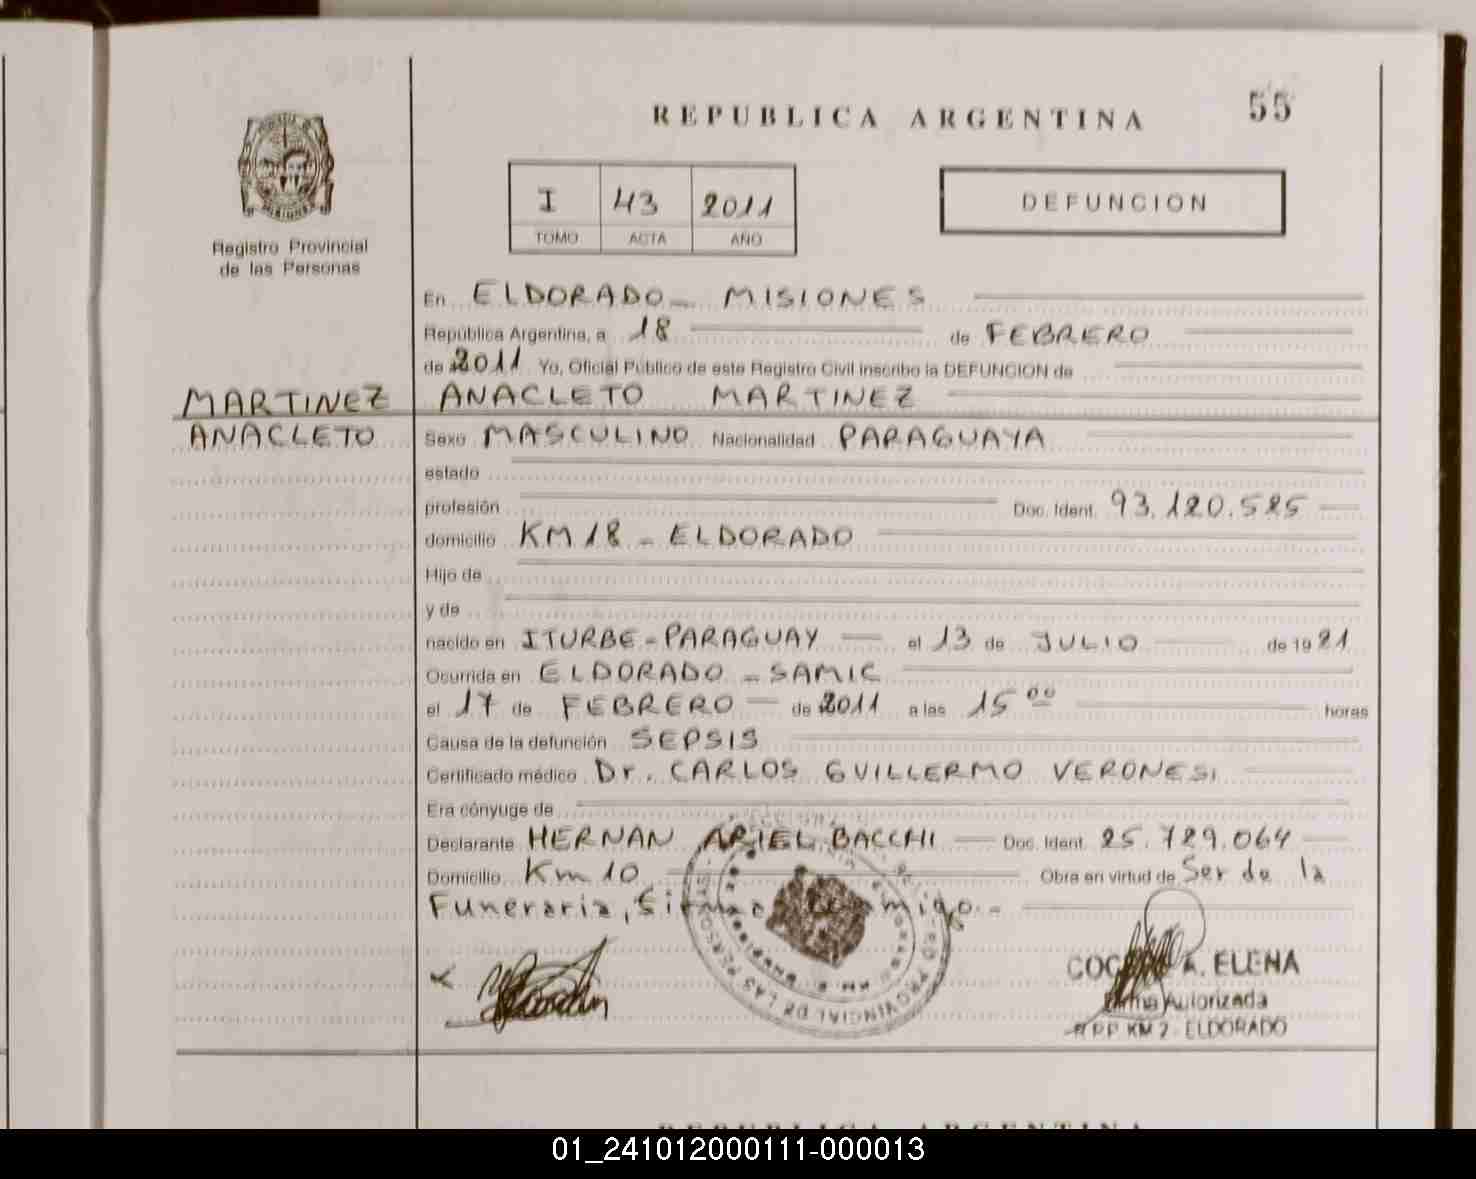 REPUBLICA ARGENTINA
55
I 43 2011
TOMO ACTA AÑO
DEFUNCION
Registro Provincial
de las Personas
En ELDORADO - MISIONES
República Argentina, a 18 de FEBRERO
de 2011 Yo, Oficial Público de este Registro Civil inscribo la DEFUNCION de
MARTINEZ
ANACLETO
ANACLETO MARTINEZ
Sexo MASCULINO Nacionalidad PARAGUAYA
estado
profesión Doc. Ident. 93.120.585
domicilio KM 18 - ELDORADO
Hijo de
y de
nacido en ITURBE - PARAGUAY el 13 de JULIO de 19 21
Ocurrida en ELDORADO - SAMIC
el 17 de FEBRERO de 2011 a las 15 00 horas
Causa de la defunción SEPSIS
Certificado médico Dr. CARLOS GUILLERMO VERONESI
Era cónyuge de
Declarante HERNAN ARIEL BACCHI Doc. Ident. 25.729.064
Domicilio Km 10 Obra en virtud de Ser de la
Funeraria,
PROVINCIAL DE LAS PERSONAS
A. ELENA
Firma Autorizada
R.P.P. KM 2 - ELDORADO
REPUBLICA ARGENTINA
01_241012000111-000013